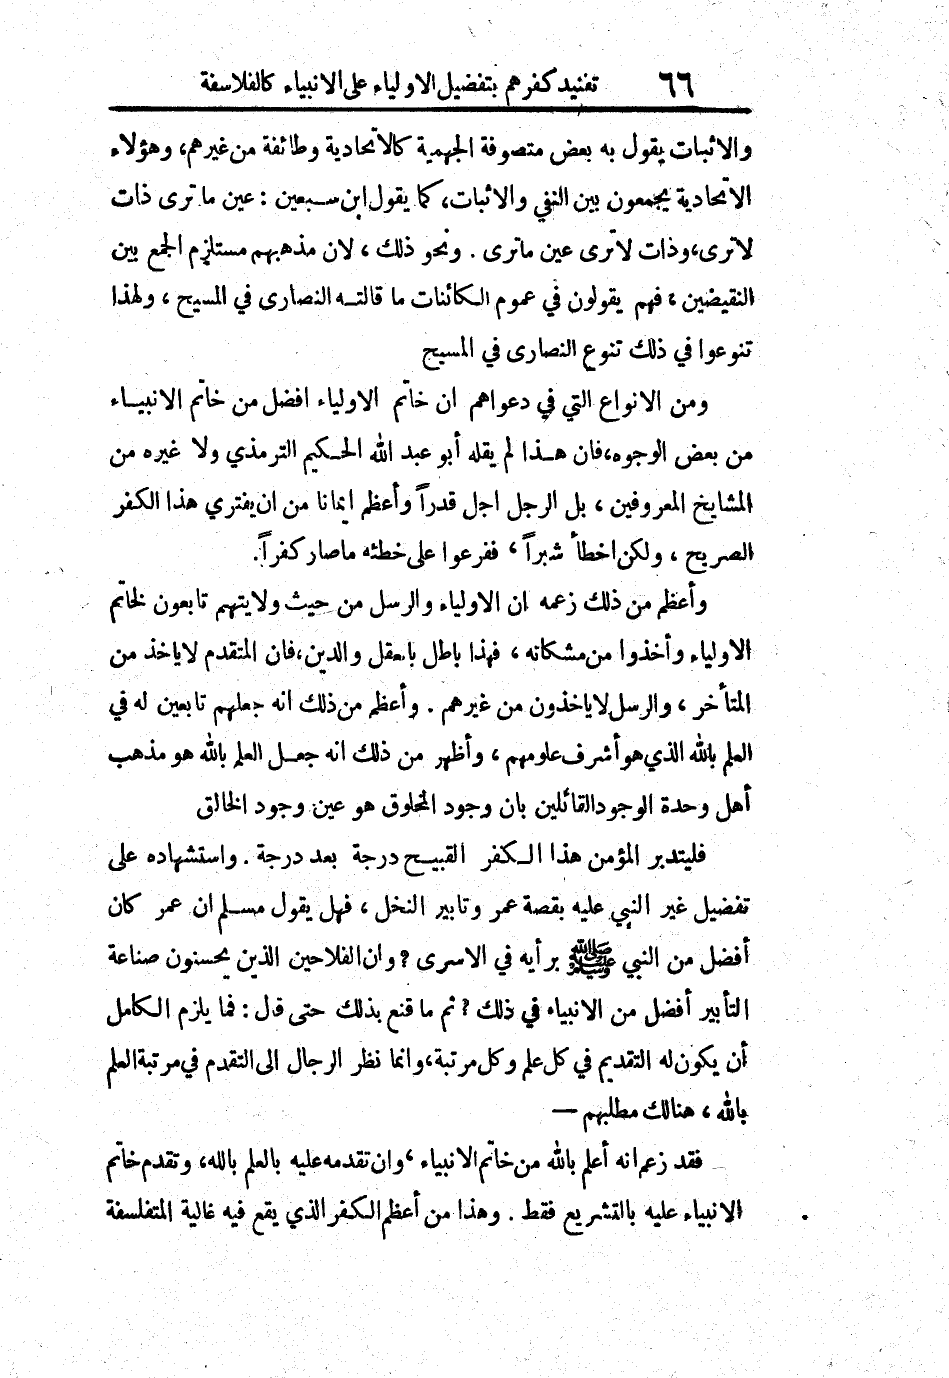 ٦٦ تفنيد كفرهم بتفضيل الاولياء على الانبياء كالفلاسفة
والاثبات يقول به بعض متصوفة الجهمية كالاتحادية وطائفة من غيرهم، وهؤلاء
الاتحادية يجمعون بين النفي والاثبات، كما يقول ابن سبعين : عين ما ترى ذات
لا ترى، وذات لا ترى عين ما ترى . ونحو ذلك ، لان مذهبهم مستلزم الجمع بين
النقيضين ، فهم يقولون في عموم الكائنات ما قالته النصارى في المسيح ، ولهذا
تنوعوا في ذلك تنوع النصارى في المسيح
ومن الانواع التي في دعواهم ان خاتم الاولياء افضل من خاتم الانبياء
من بعض الوجوه، فان هذا لم يقله أبو عبد الله الحكيم الترمذي ولا غيره من
المشايخ المعروفين ، بل الرجل اجل قدراً وأعظم ايمانا من ان يفتري هذا الكفر
الصريح ، ولكن اخطأ شبراً ، ففرعوا على خطئه ما صار كفراً.
وأعظم من ذلك زعمه ان الاولياء والرسل من حيث ولايتهم تابعون لخاتم
الاولياء وأخذوا من مشكاته ، فهذا باطل بالعقل والدين، فان المتقدم لا ياخذ من
المتأخر ، والرسل لا ياخذون من غيرهم . وأعظم من ذلك انه جعلهم تابعين له في
العلم بالله الذي هو أشرف علومهم ، وأظهر من ذلك انه جعل العلم بالله هو مذهب
أهل وحدة الوجود القائلين بان وجود المخلوق هو عين وجود الخالق
فليتدبر المؤمن هذا الكفر القبيح درجة بعد درجة . واستشهاده على
تفضيل غير النبي عليه بقصة عمر وتابير النخل ، فهل يقول مسلم ان عمر كان
أفضل من النبي ﷺ برأيه في الاسرى ? وان الفلاحين الذين يحسنون صناعة
التأبير أفضل من الانبياء في ذلك ? ثم ما قنع بذلك حتى قال : فما يلزم الكامل
أن يكون له التقديم في كل علم وكل مرتبة، وانما نظر الرجال الى التقدم في مرتبة العلم
بالله ، هنالك مطلبهم —
فقد زعم انه أعلم بالله من خاتم الانبياء ، وان تقدمه عليه بالعلم بالله، وتقدم خاتم
الانبياء عليه بالتشريع فقط . وهذا من أعظم الكفر الذي يقع فيه غالية المتفلسفة